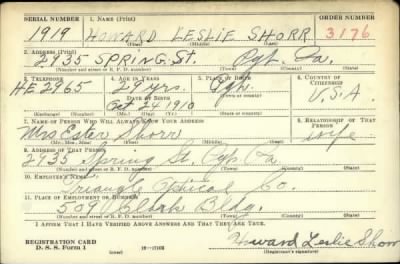 SERIAL NUMBER 1. NAME (Print) ORDER NUMBER
1919 HOWARD LESLIE SHORR 3176
(First) (Middle) (Last)
2. ADDRESS (Print)
2935 SPRING St. Pgh. Pa.
(Number and street or R. F. D. number) (Town) (County) (State)
3. TELEPHONE 4. AGE IN YEARS 5. PLACE OF BIRTH 6. COUNTRY OF CITIZENSHIP
HE 2965 29 yrs. Pgh. U.S.A.
DATE OF BIRTH
Oct 24 1910
(Town or county)
(Exchange) (No.) (Mo.) (Day) (Yr.) (State or country)
7. NAME OF PERSON WHO WILL ALWAYS KNOW YOUR ADDRESS 8. RELATIONSHIP OF THAT PERSON
Mrs Ester Shorr wife
(Mr., Mrs., Miss) (First) (Middle) (Last)
9. ADDRESS OF THAT PERSON
2935 Spring St. Pgh. Pa
(Number and street or R. F. D. number) (Town) (County) (State)
10. EMPLOYER'S NAME
Triangle Optical Co.
11. PLACE OF EMPLOYMENT OR BUSINESS
509 Clark Bldg.
(Number and street or R. F. D. number) (Town) (County) (State)
I AFFIRM THAT I HAVE VERIFIED ABOVE ANSWERS AND THAT THEY ARE TRUE.
REGISTRATION CARD
D. S. S. Form 1 (over) Howard Leslie Shorr
(Registrant's signature)